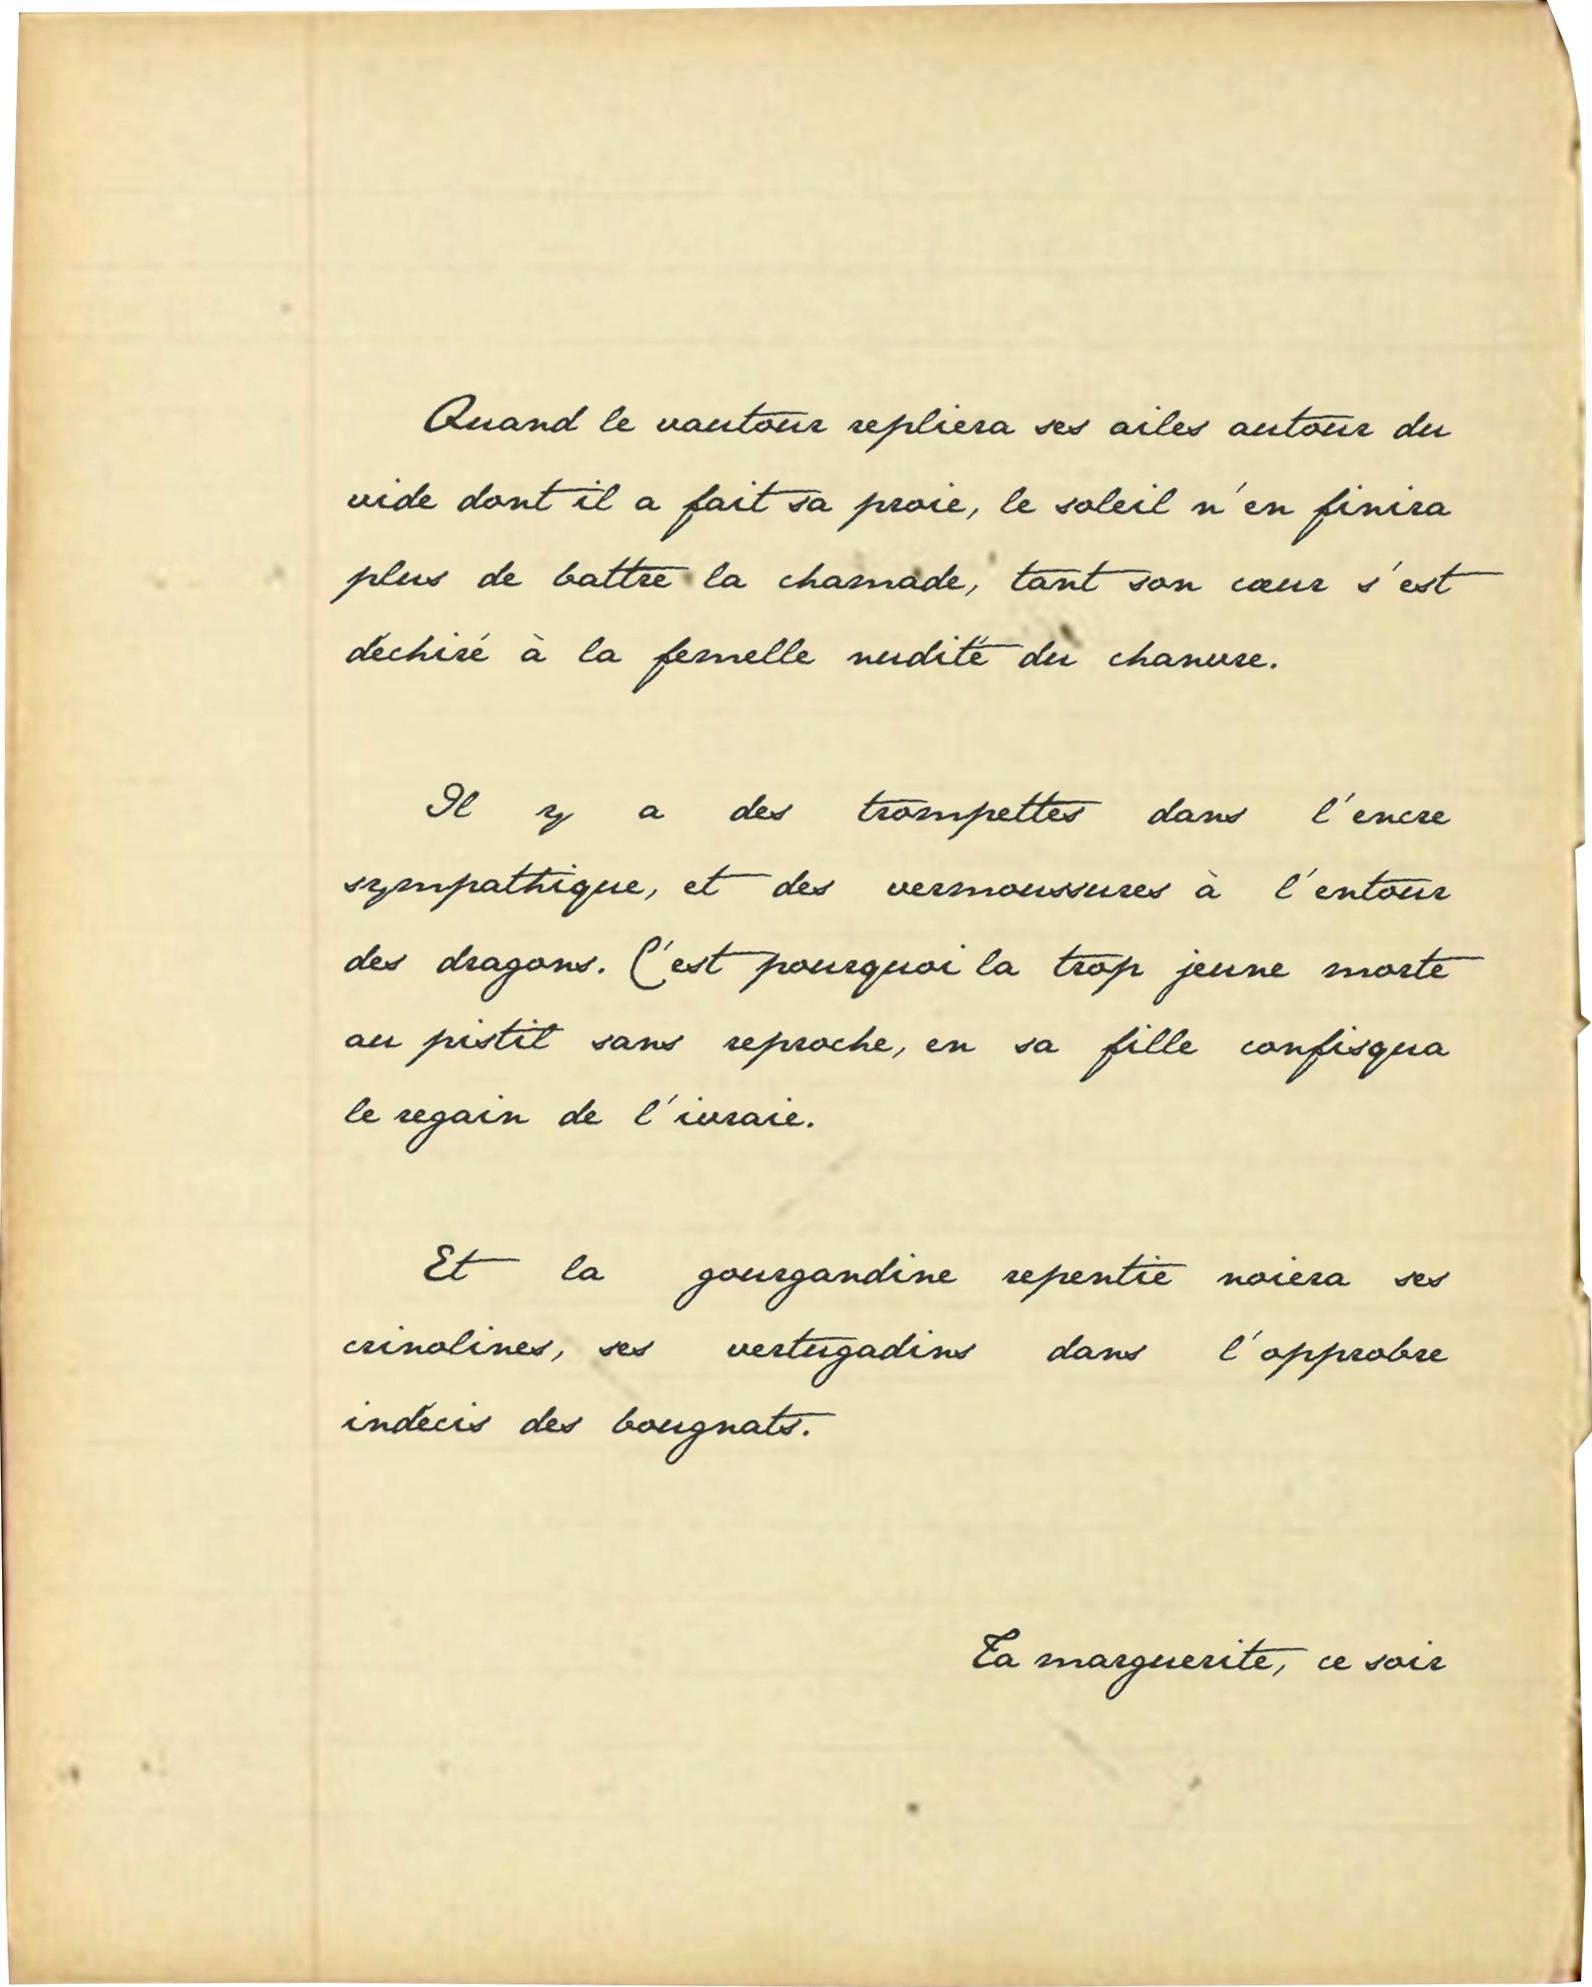 Quand le vautour repliera ses ailes autour du
vide dont il a fait sa proie, le soleil n'en finira
plus de battre la chamade, tant son cœur s'est
déchiré à la femelle nudité du chanvre.
Il y a des trompettes dans l'encre
sympathique, et des vermoussures à l'entour
des dragons. C'est pourquoi la trop jeune morte
au pistil sans reproche, en sa fille confisqua
le regain de l'ivraie.
Et la gourgandine repentie noiera ses
crinolines, ses vertugadins dans l'opprobre
indécis des bougnats.
Ta marguerite, ce soir